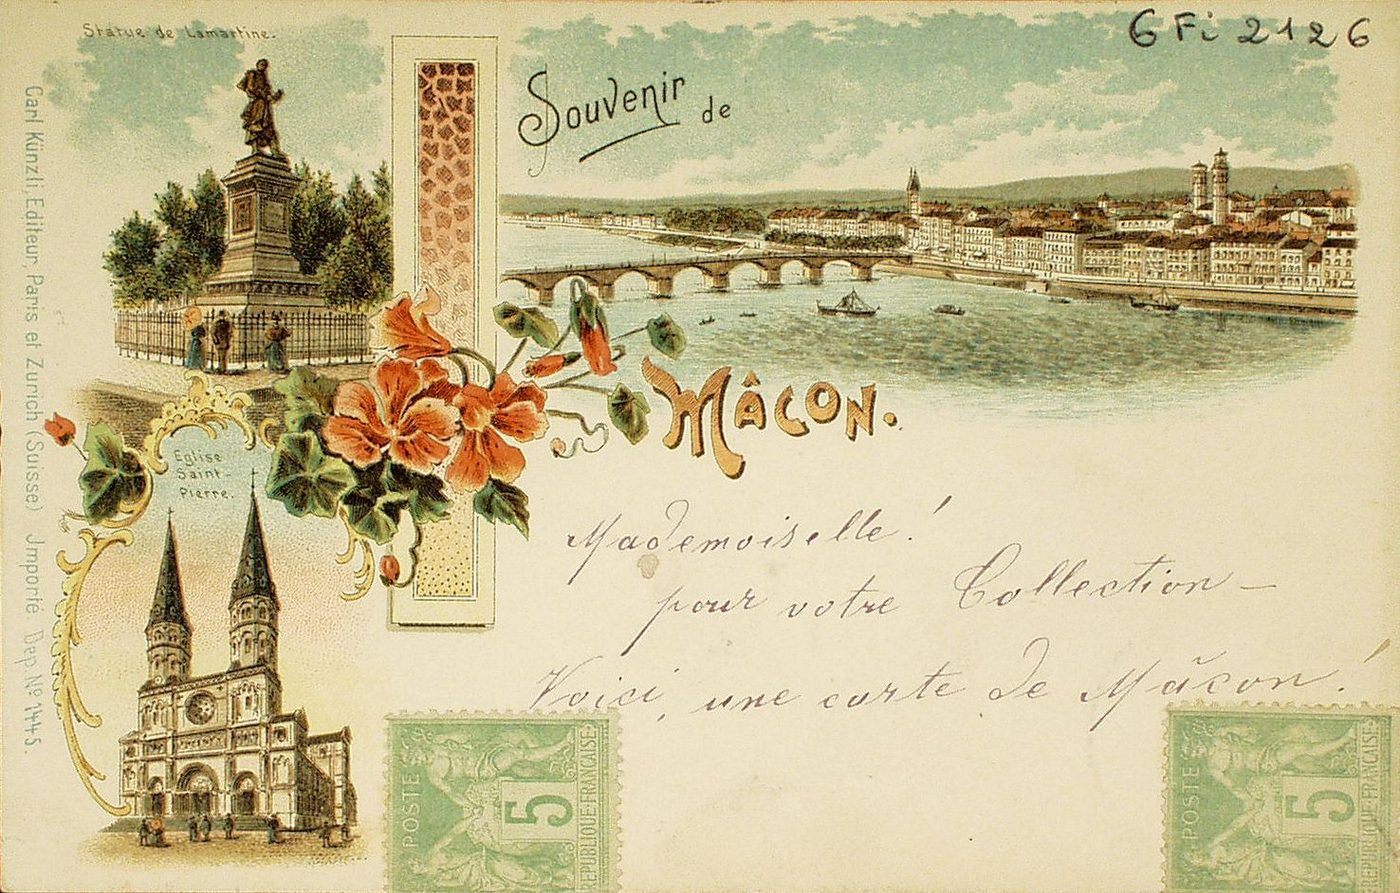 Statue de Lamartine.
6 Fi 2126
Souvenir de
Mâcon.
Eglise
Saint-
Pierre.
Carl Künzli, Editeur, Paris et Zurich (Suisse) Jmporté Dep. Nº 1445.
Mademoiselle!
pour votre Collection –
Voici, une carte de Mâcon!
POSTE
5
REPUBLIQUE·FRANÇAISE
POSTE
5
REPUBLIQUE·FRANÇAISE